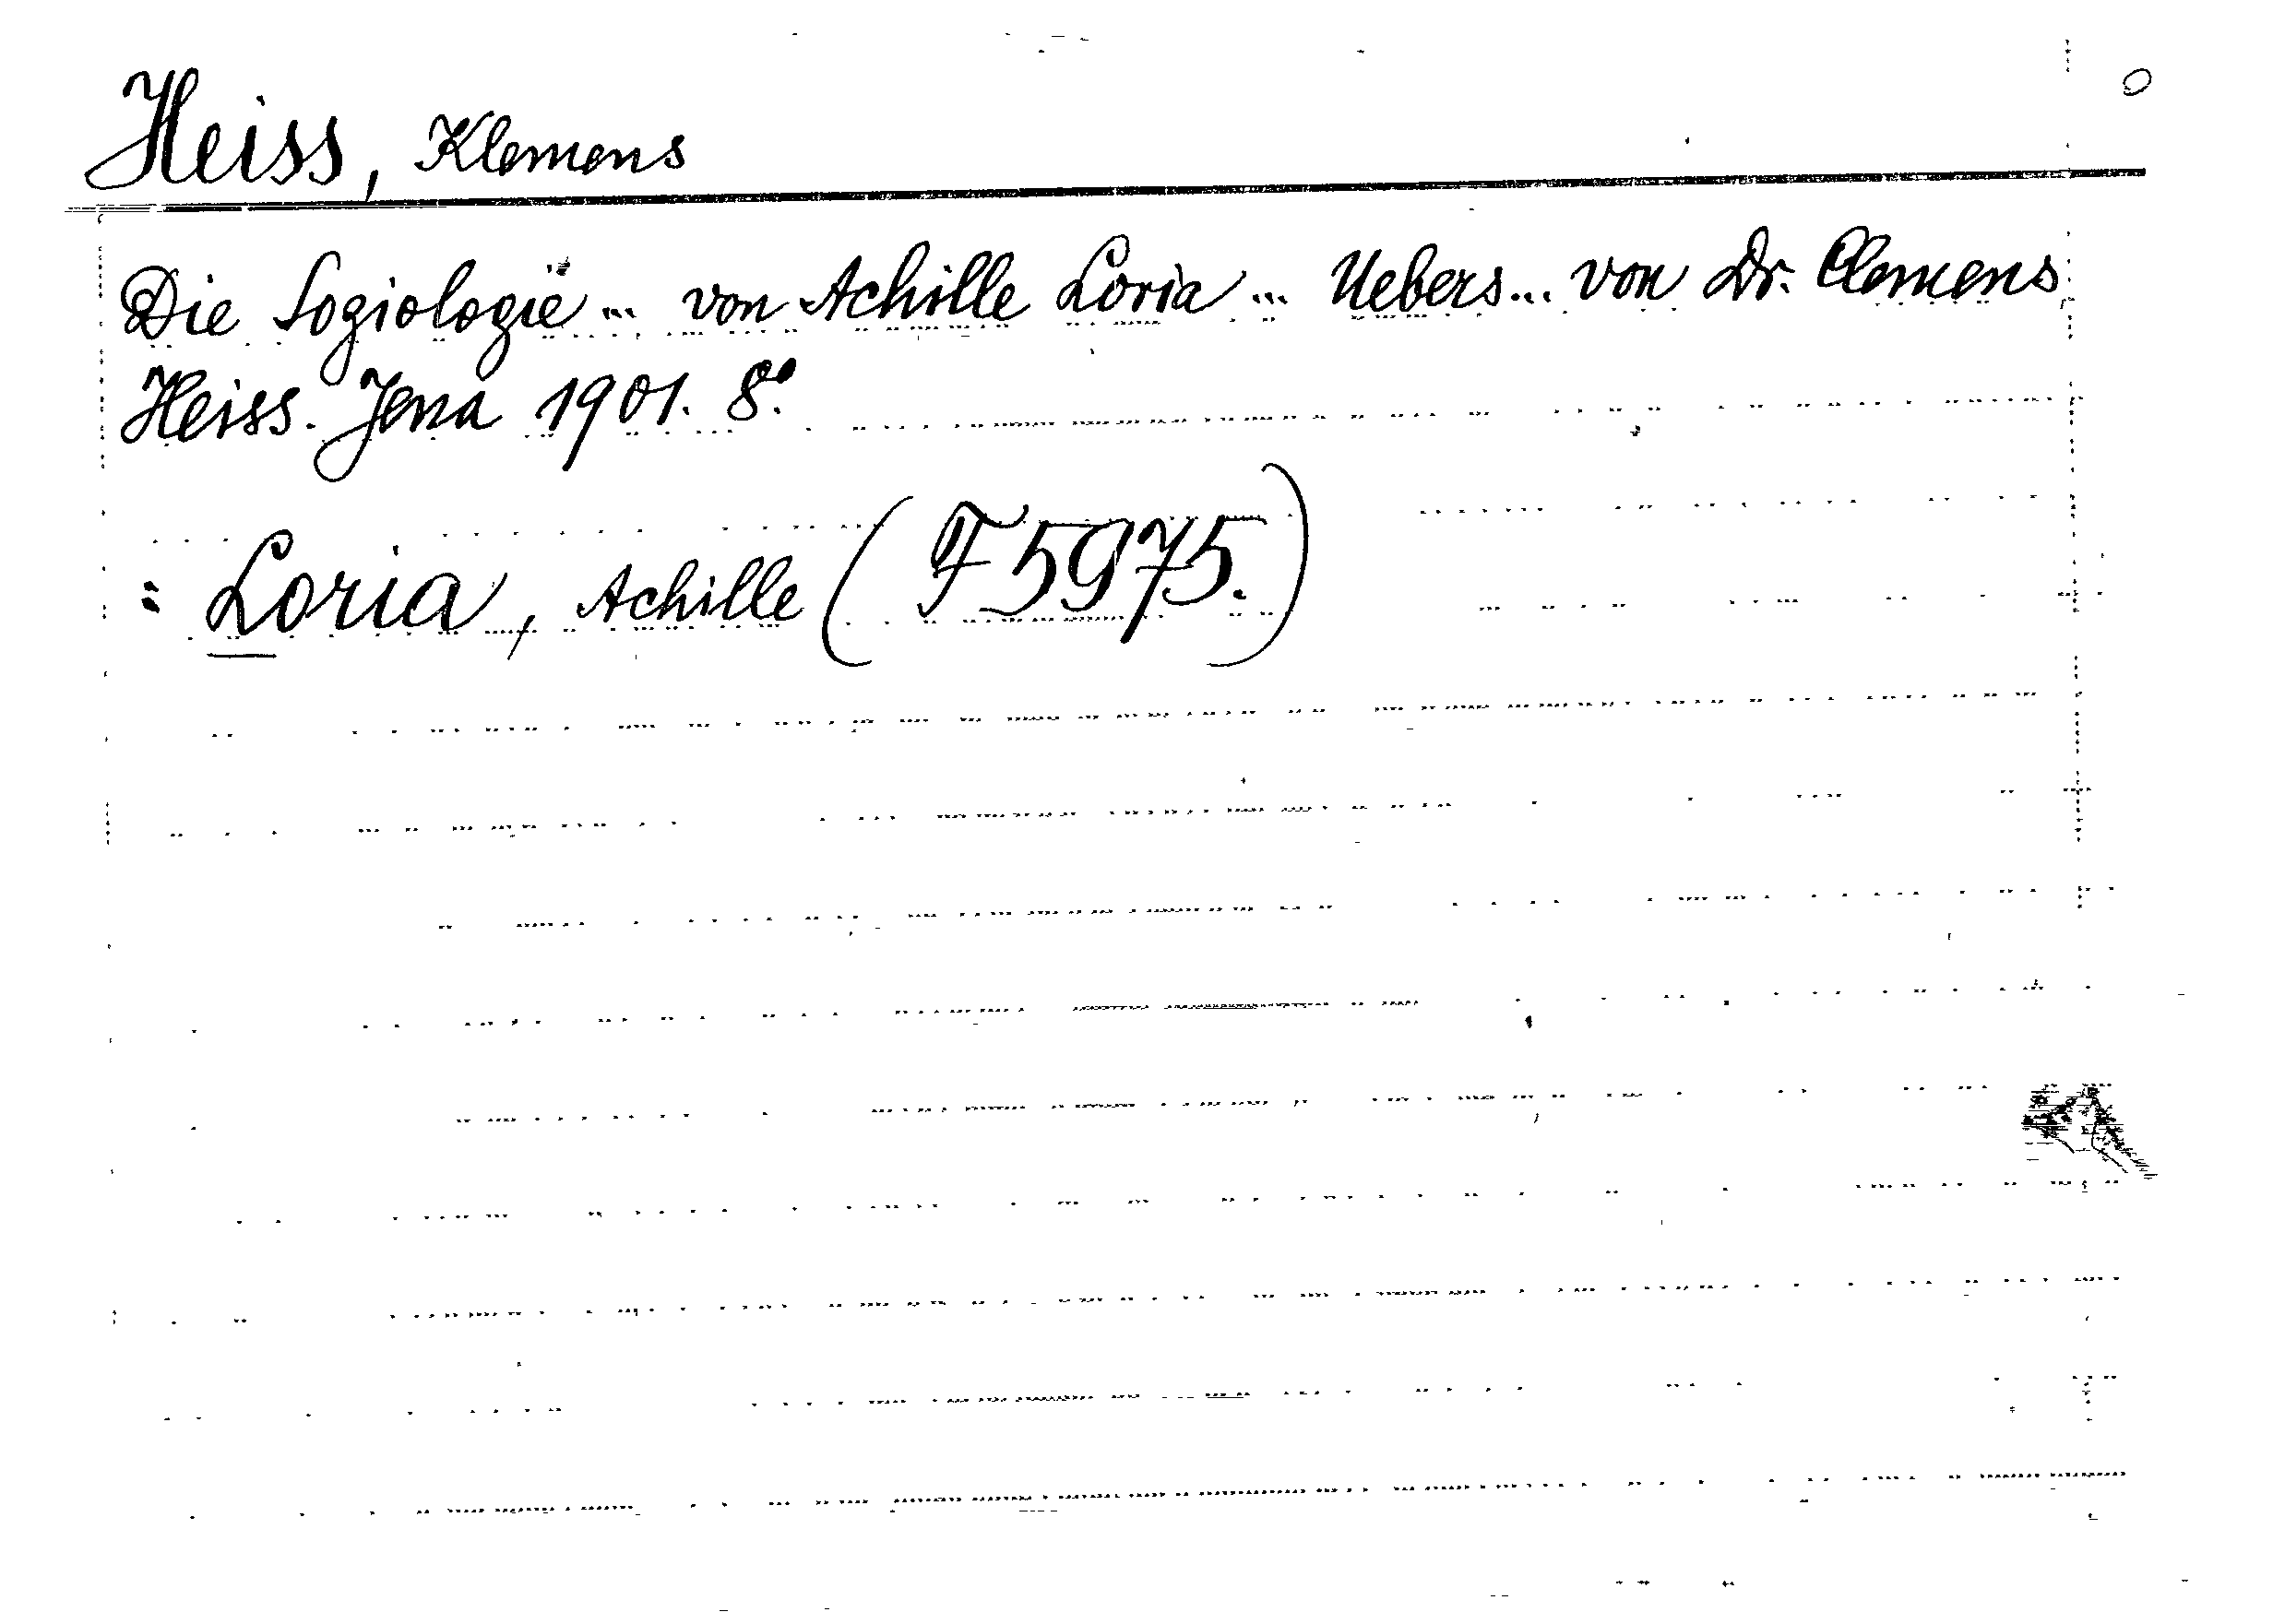 Heiss, Klemens
Die Soziologie ... von Achille Loria ... Uebers... von Dr. Clemens
Heiss. Jena 1901. 8º.
= Loria, Achille (F 5975.)